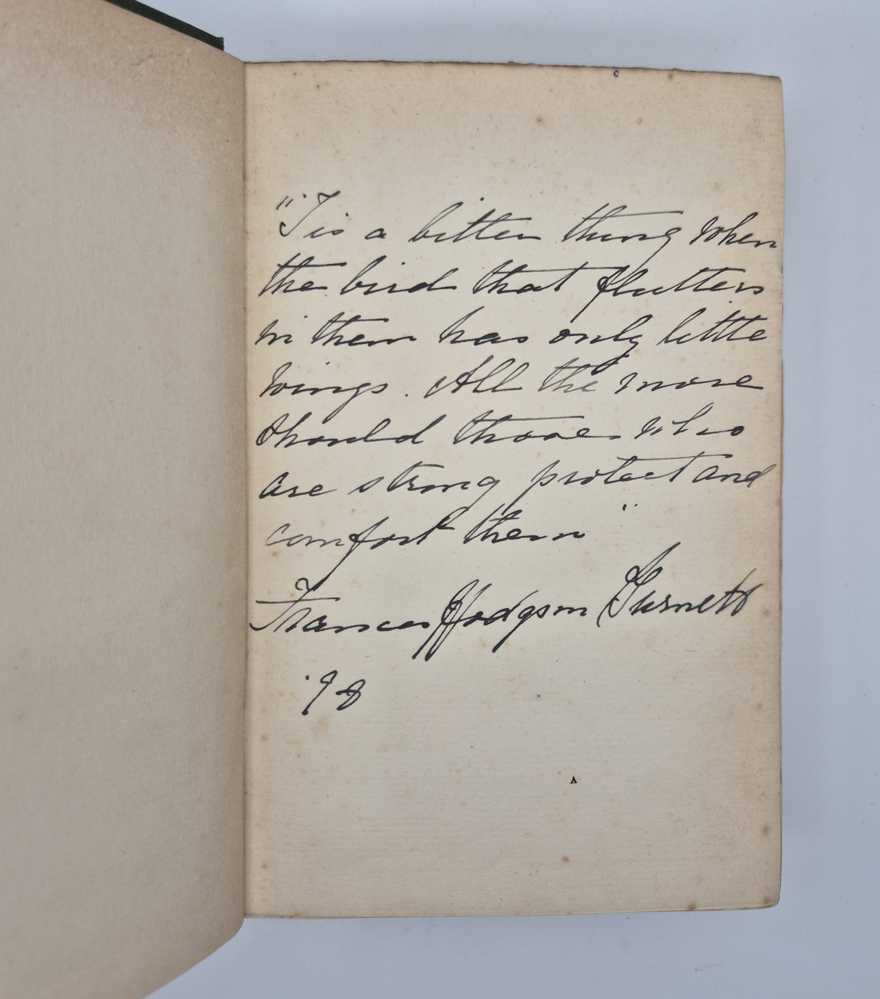 "Tis a bitter thing when
the bird that flutters
in them has only little
wings. All the more
should those who
are strong protect and
comfort them"
Frances Hodgson Burnett
'98